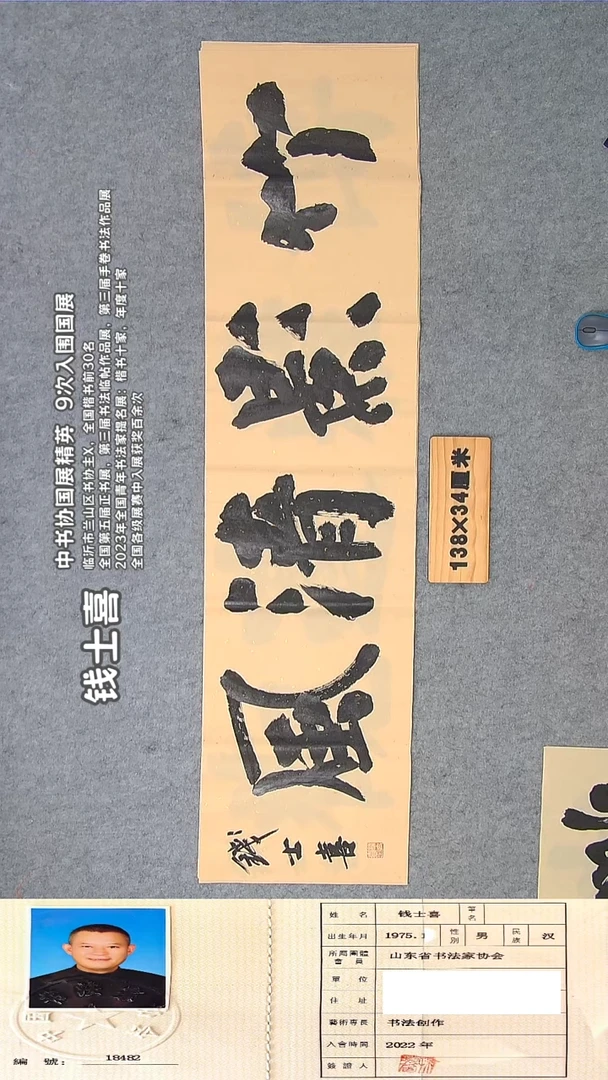 钱士喜
中书协国展精英 9次入围国展
临沂市兰山区书协主X、全国楷书前30名
全国第五届正书展、第三届书法临帖作品展、第三届手卷书法作品展
2023年全国青年书法家提名展：楷书十家，年度十家
全国各级展赛中入展获奖百余次
竹影清風
錢士喜
138×34厘米
編號：18482
姓名 钱士喜 筆名
出生年月 1975.1 性別 男 民族 汉
所屬團體會員 山东省书法家协会
單位
住址
藝術專長 书法创作
入會時間 2022年
簽證人